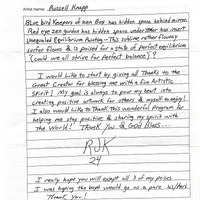 Artist Name Russell Knapp
Blue bird Keepers of zen Box has hidden space behind mirror.
Red eye zen garden has hidden space under has insert
Unequaled Equilibrium Painting - This sublime rather flouncy
surfer flows & is poised for a state of Perfect equilibrium
(could we all strive for Perfect balance) ?
I would like to start by giving all Thanks to the
Great Creator for blessing me with a fun Artistic
Spirit! My goal is always to pour my heart into
creating positive artwork for others & myself to enjoy!
I also would like to Thank this wonderful program for
helping me stay positive & sharing my spirit with
the World! Thank You & God Bless...
RJK
24
I really hope you will accept all 3 of my pieces
I was hoping the bird would go as a pair
Thank You!